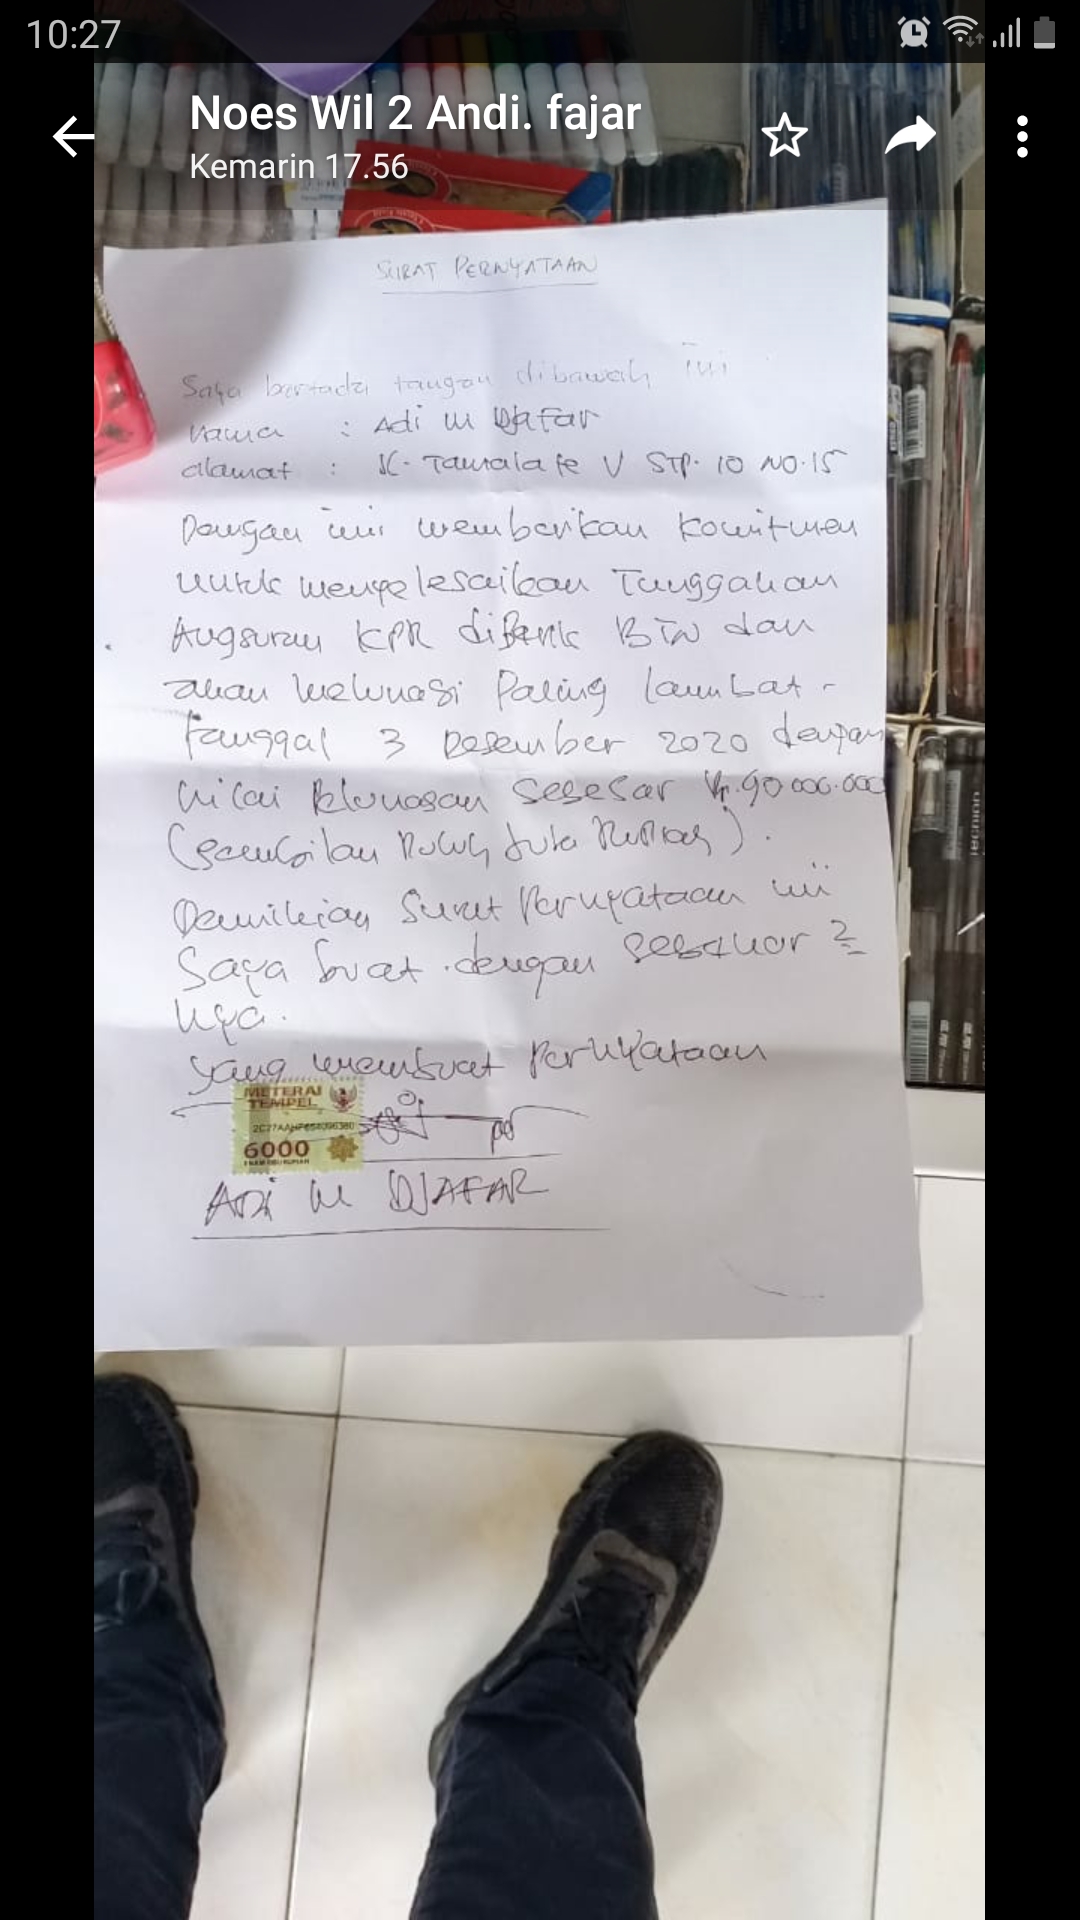 10:27
Noes Wil 2 Andi. fajar
Kemarin 17.56
SURAT PERNYATAAN
Saya bertada tangan dibawah ini
Nama : Adi M Djafar
alamat : Jl. Tamalate V STP. 10 NO. 15
Dengan ini memberikan komitmen
untuk menyelesaikan Tunggakan
Angsuran KPR diBank BTN dan
akan melunasi Paling lambat -
tanggal 3 Desember 2020 dengan
nilai Pelunasan sebesar Rp. 90.000.000
(Sembilan Puluh Juta Rupiah).
Demikian Surat Pernyataan ini
Saya buat dengan sebenar 2
nya.
yang membuat Pernyataan
METERAI
TEMPEL
6000
ENAM RIBU RUPIAH
ADI M DJAFAR